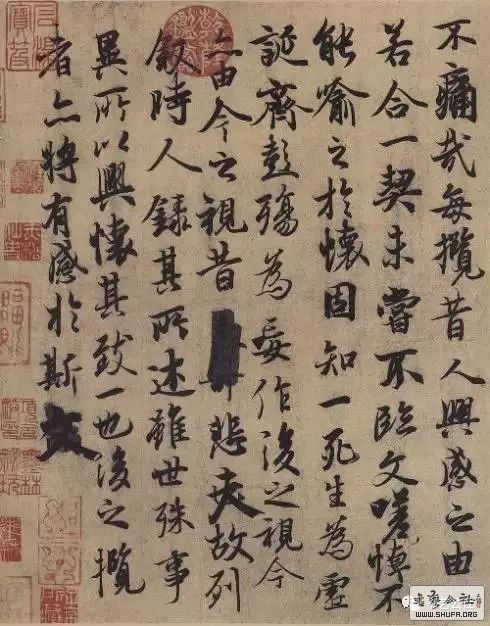 不痛哉每攬昔人興感之由
若合一契未嘗不臨文嗟悼不
能喻之於懷固知一死生為虛
誕齊彭殤為妄作後之視今
亦由今之視昔悲夫故列
叙時人錄其所述雖世殊事
異所以興懷其致一也後之攬
者亦將有感於斯文
WWW.SHUFA.ORG